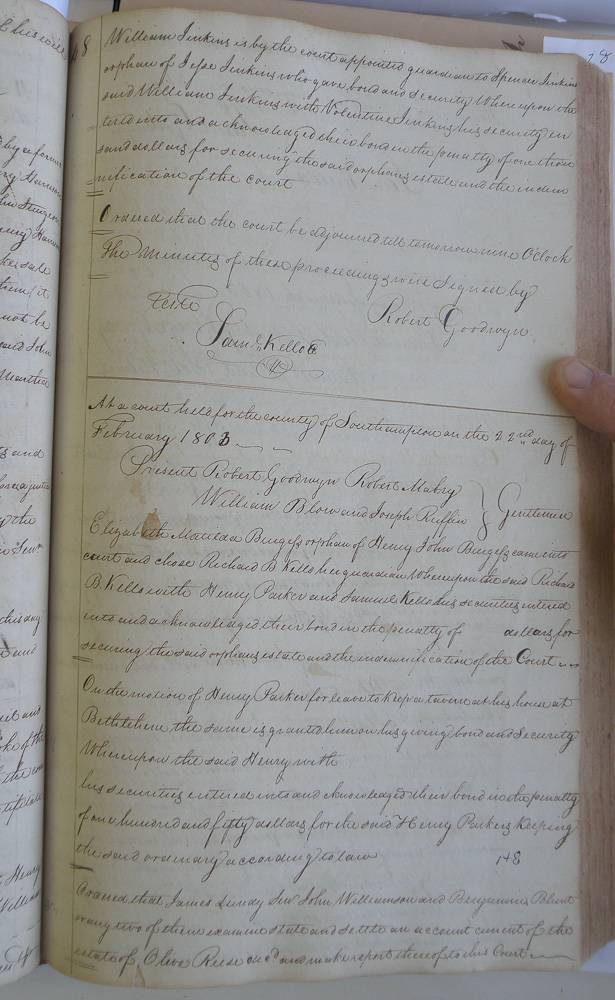 48 William Jinkins is by the court appointed guardian to Spencer Jinkins
orphan of Jesse Jinkins who gave bond and security Whereupon the
said William Jinkins with Valentine Jenkins his security en
tered into and acknowledged their bond in the penalty of one thou
sand dollars for securing the said orphans estate and the indem
nification of the court
Ordered that the court be adjourned till tomorrow nine OClock
The Minutes of these proceedings were signed by
Teste
Robert Goodwyn
Saml. Kello C
At a court held for the county of Southampton on the 22nd day of
February 1803
Present Robert Goodwyn Robert Mabry
William Blow and Joseph Ruffin } Gentlemen
Elizabeth Matilda Burgess orphan of Henry John Burgess came into
court and chose Richard B Kello her guardian Whereupon the said Richard
B. Kello with Henry Parker and Samuel Kello his securities entered
into and acknowledged their bond in the penalty of dollars for
securing the said orphans estate and the indemnification of the Court
On the motion of Henry Parker for leave to keep a tavern at his house at
Bethlehem the same is granted him on his giving bond and security
Whereupon the said Henry with
his securities entered into and acknowledged their bond in the penalty
of one hundred and fifty dollars for the said Henry Parkers keeping
the said ordinary according to law
148
Ordered that James Lundy Senr John Williamson and Benjamin Blunt
or any two of them examine state and settle an account current of the
estate of Olive Reese decd and make report thereof to this Court